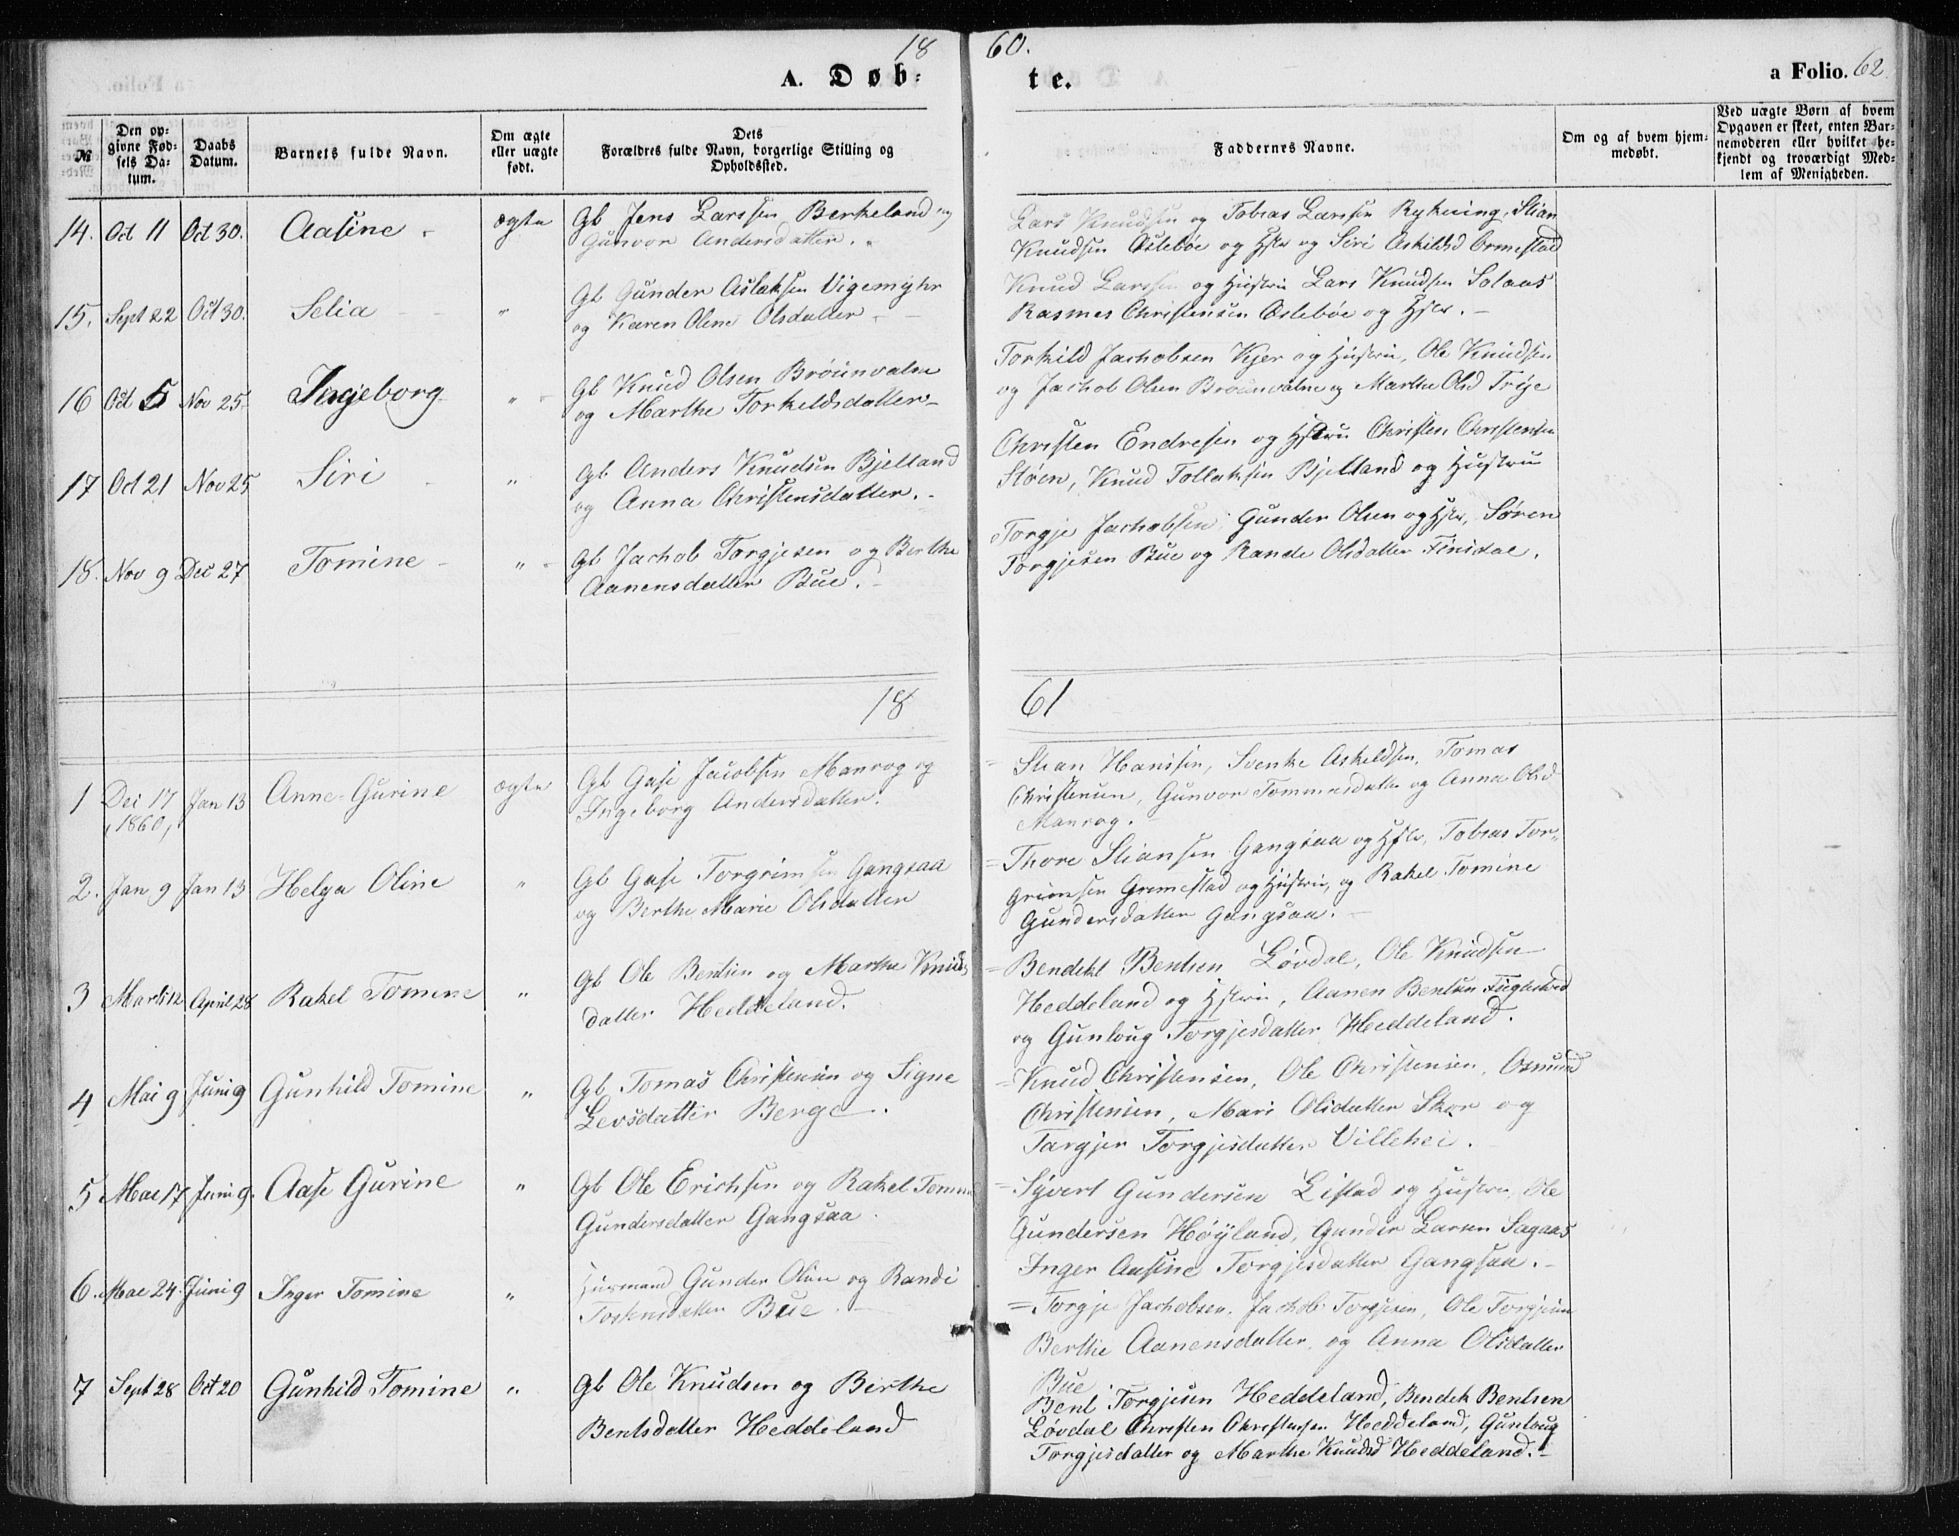 18 60.
A. Døb- te. a Folio. 62
№
Den op-
givne Fød-
sels Da-
tum.
Daabs
Datum.
Barnets fulde Navn.
Om ægte
eller uægte
født.
Dets
Forældres fulde Navn, borgerlige Stilling og
Opholdssted.
Faddernes Navne.
Om og af hvem hjem-
medøbt.
Ved uægte Børn af hvem
Opgaven er skeet, enten Bar-
nemoderen eller hvilket be-
kjendt og troværdigt Med-
lem af Menigheden.
14. Oct 11 Oct 30. Aasine ægte
Gb Jens Larssen Berkeland og
Gunvor Andersdatter.
Lars Knudsen og Tobias Larssen Rykning, Stian
Knudsen Oslebøe og Hstr og Siri Askildsd Ormestad
15. Sept 22 Oct 30. Selia "
Gb Gunder Aslaksen Vigemyhr
og Karen Oline Olsdatter
Knud Larssen og Hustru Lars Knudsen Solaas
Rasmes Christensen Oslebøe og Hstr.
16 Oct 5 Nov 25 Ingeborg "
Gb Knud Olsen Brøunvalne
og Marthe Torkeldsdatter
Torkild Jachobsen Vejer og Hustru, Ole Knudsen
og Jachob Olsen Brøunvalne og Marthe Olsd Trije
17 Oct 21 Nov 25 Siri "
Gb Anders Knudsen Bjelland
og Anna Christensdatter.
Christen Endresen og Hstru Christen Christensen
Støen, Knud Tollaksen Bjelland og Hustru
18. Nov 9 Dec 27 Tomine "
Gb Jachob Torgjesen og Berthe
Aanensdatter Bue.
Torgje Jachobsen, Gunder Olsen og Hstr, Søren
Torgjesen Bue og Rande Olsdatter Finsdal.
18 61
1 Dec 17 Jan 13 Anne Gurine ægte
1860,
Gb Gase Jacobsen Manrog og
Ingeborg Andersdatter.
Stian Hanssen, Svenke Askeldsen, Tomas
Christensen, Gunvor Tommesdatter og Anna Olsd
Manrog.
2. Jan 9 Jan 13 Helga Oline "
Gb Gase Torgrimsen Gangsaa
og Berthe Marie Olsdatter
Thore Stiansen Gangsaa og Hstr, Tobias Tor-
grimsen Grimestad og Hustru, og Rakel Tomine
Gundersdatter Gangsaa.
3 Marts 12 April 28 Rakel Tomine "
Gb Ole Bentsen og Marthe Knuds
datter Heddeland.
Bendikt Bentsen Løvdal, Ole Knudsen
Heddeland og Hstru, Aanen Bentsen Fuglestvedt
og Gunloug Torgjesdatter Heddeland.
4 Mai 9 Juni 9 Gunhild Tomine "
Gb Tomas Christensen og Signe
Levsdatter Berge.
Knud Christensen, Ole Christensen, Osmund
Christensen, Mari Olsdatter Skor og
Targjer Torgjesdatter Villehei.
5 Mae 17 Juni 9. Aase Gurine "
Gb Ole Erichsen og Rakel Tomine
Gundersdatter Gangsaa
Syvert Gundersen Listad og Hustru, Ole
Gundersen Høyland, Gunder Larsen Sagaas
Inger Aasine Torgjesdatter Gangsaa.
6. Mae 24 Juni 9 Inger Tomine "
Husmand Gunder Olsen og Randi
Tostensdatter Bue.
Torgje Jachobsen. Jachob Torgjesen, Ole Torgjesen
Berthe Aanensdatter og Anna Olsdatter
Bue
7 Sept 28 Oct 20 Gunhild Tomine "
Gb Ole Knudsen og Birthe
Bentsdatter Heddeland
Bent Torgjesen Heddeland, Bendik Bentsen
Løvdal Christen Christensen Heddeland, Gunloug
Torgjesdatter og Marthe Knudsd Heddeland.